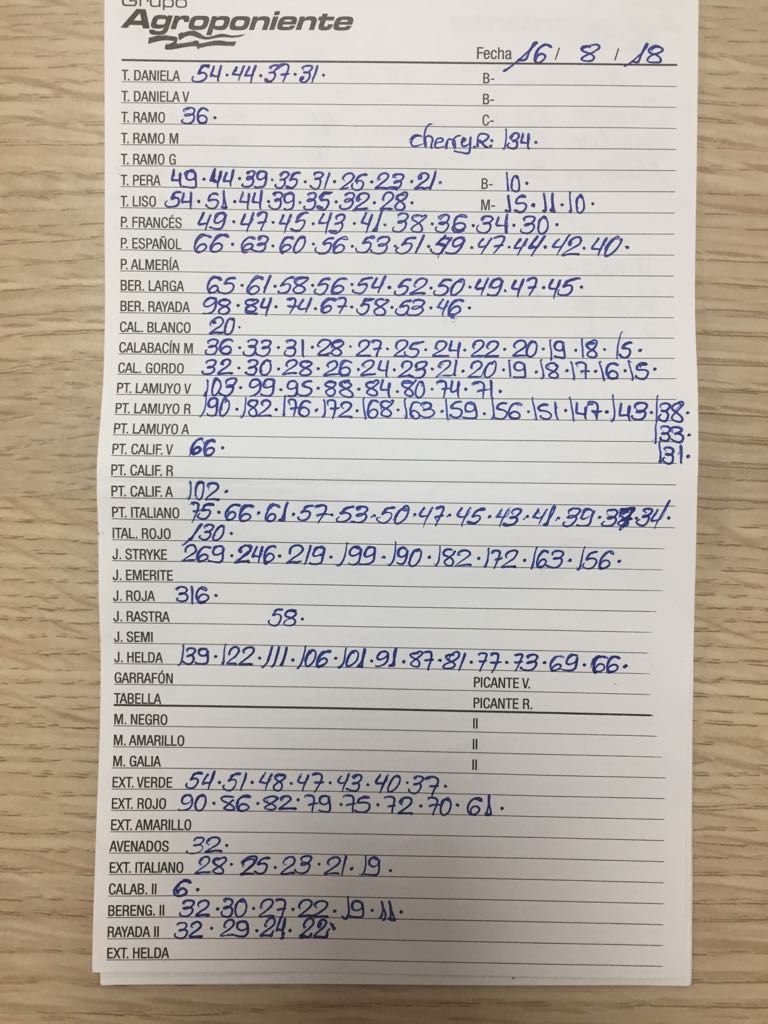 Grupo
Agroponiente
Fecha 16 / 8 / 18
T. DANELA 54·44·37·31· B-
T. DANIELA V B-
T. RAMO 36· C-
T. RAMO M cherry.R: 134·
T. RAMO G
T. PERA 49·44·39·35·31·25·23·21· B- 10·
T. LISO 54·51·44·39·35·32·28· M- 15·11·10·
P. FRANCÉS 49·47·45·43·41·38·36·34·30·
P. ESPAÑOL 66·63·60·56·53·51·49·47·44·42·40·
P. ALMERÍA
BER. LARGA 65·61·58·56·54·52·50·49·47·45·
BER. RAYADA 98·84·74·67·58·53·46·
CAL. BLANCO 20·
CALABACÍN M 36·33·31·28·27·25·24·22·20·19·18·15·
CAL. GORDO 32·30·28·26·24·23·21·20·19·18·17·16·15·
PT. LAMUYO V 103·99·95·88·84·80·74·71·
PT. LAMUYO R 190·182·176·172·168·163·159·156·151·147·143·138·
PT. LAMUYO A 133·
PT. CALIF. V 66· 131·
PT. CALIF. R
PT. CALIF. A 102·
PT. ITALIANO 75·66·61·57·53·50·47·45·43·41·39·37·34·
ITAL. ROJO 130·
J. STRYKE 269·246·219·199·190·182·172·163·156·
J. EMERITE
J. ROJA 316·
J. RASTRA 58·
J. SEMI
J. HELDA 139·122·111·106·101·91·87·81·77·73·69·66·
GARRAFÓN PICANTE V.
TABELLA PICANTE R.
M. NEGRO II
M. AMARILLO II
M. GALIA II
EXT. VERDE 54·51·48·47·43·40·37·
EXT. ROJO 90·86·82·79·75·72·70·61·
EXT. AMARILLO
AVENADOS 32·
EXT. ITALIANO 28·25·23·21·19·
CALAB. II 6·
BERENG. II 32·30·27·22·19·11·
RAYADA II 32·29·24·22·
EXT. HELDA